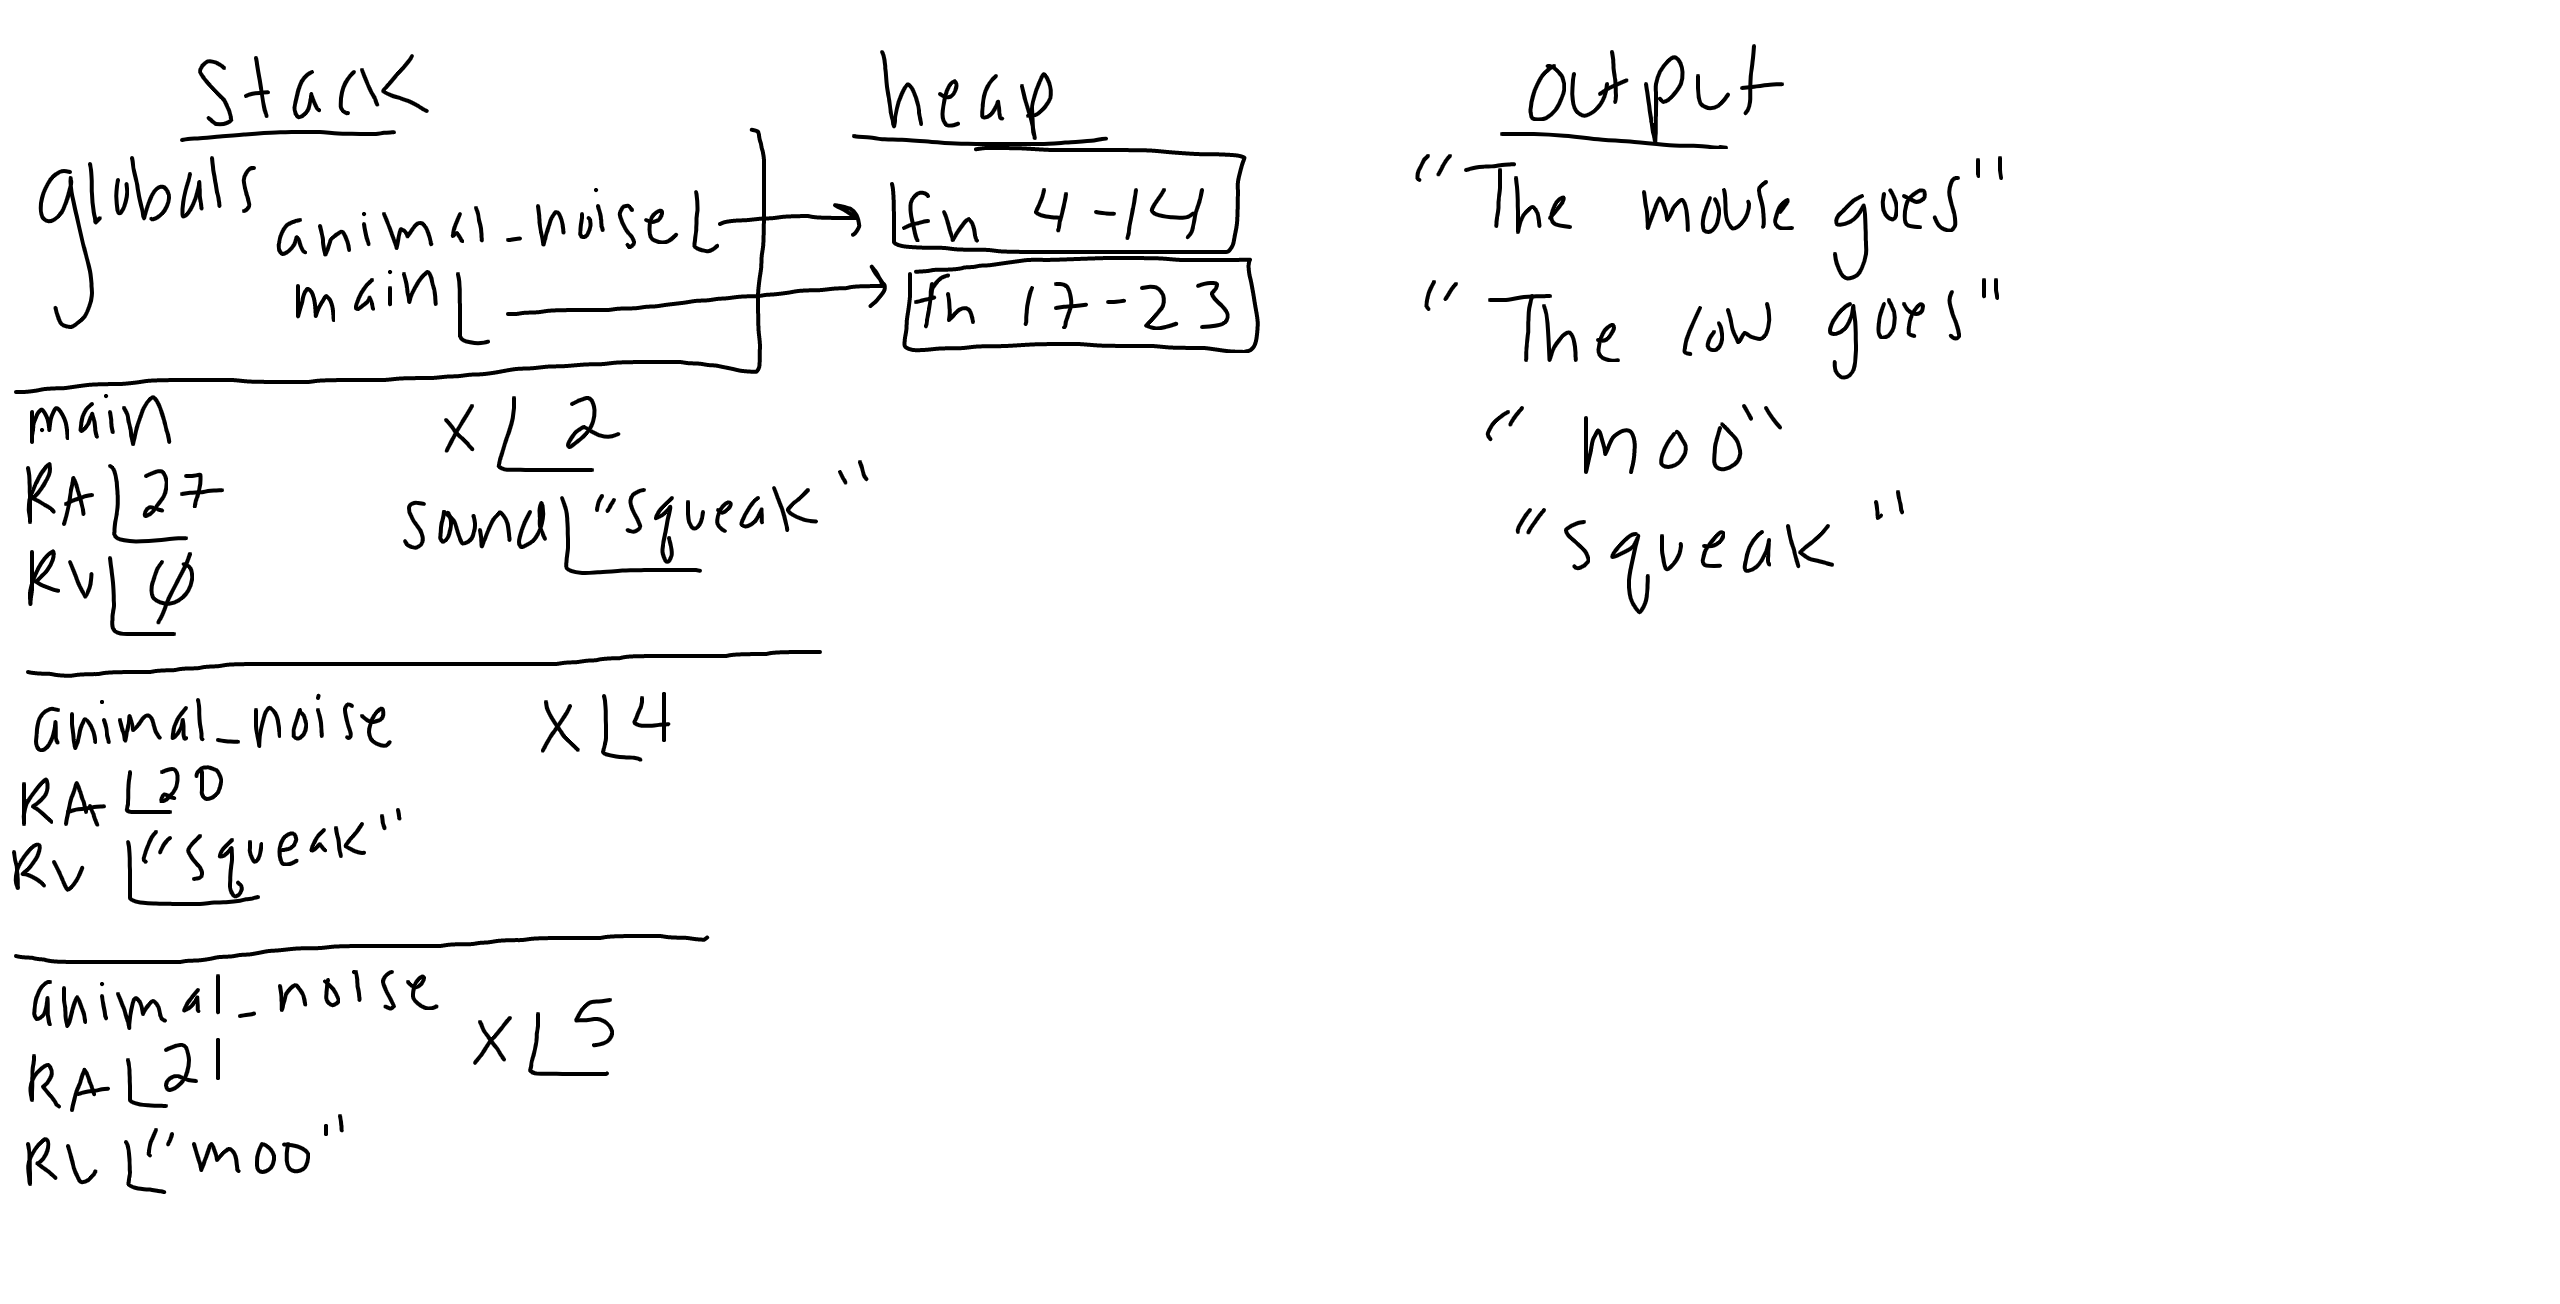 Stack
globals
animal_noise
main
main
RA 27
RV φ
x 2
sound "squeak"
animal_noise
RA 20
RV "squeak"
x 4
animal_noise
RA 21
RV "moo"
x 5
heap
fn 4-14
fn 17-23
output
"The mouse goes"
"The cow goes"
"moo"
"squeak"